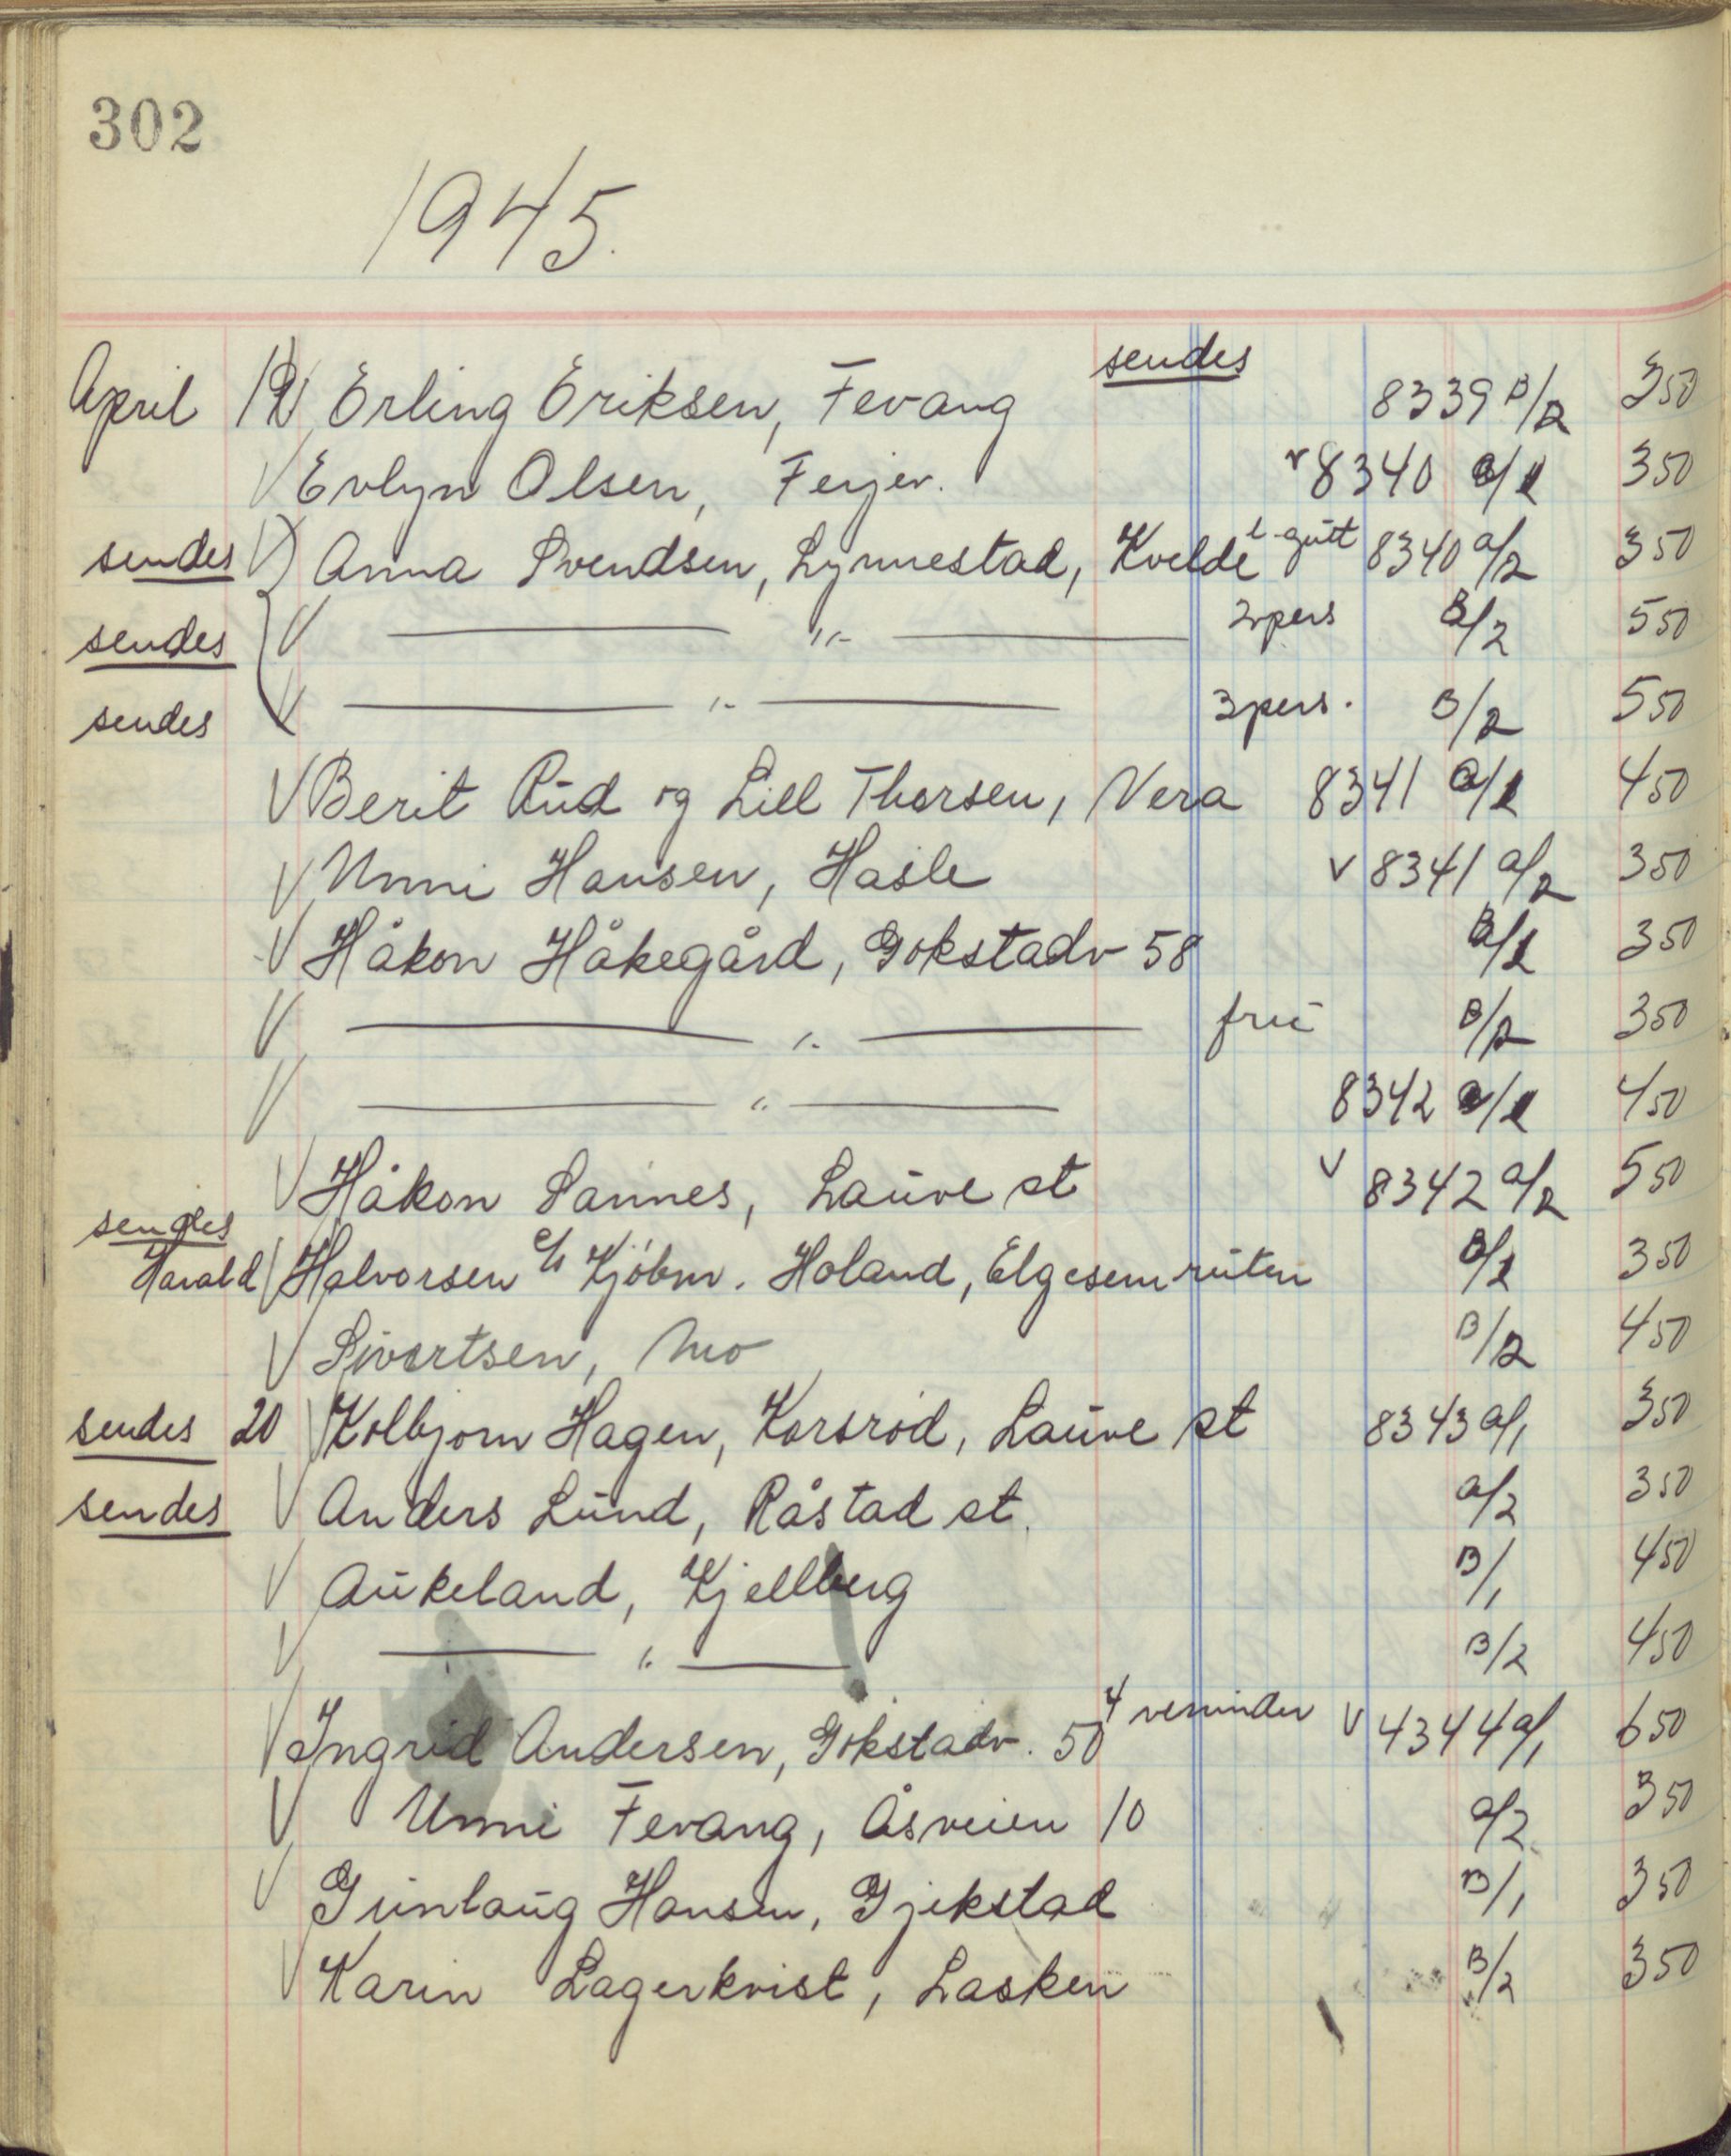 302
1945.
April 19 Erling Eriksen, Fevang sendes 8339 B/2 350
V Evlyn Olsen, Ferjev. v 8340 a/1 350
sendes V Anna Svendsen, Lynnestad, Kvelde l. gutt 8340 a/2 350
sendes V —— " —— 2 pers B/2 550
sendes V —— " —— 3 pers. B/2 550
V Berit Rud og Lill Thorsen, Vera 8341 a/1 450
V Unni Hansen, Hasle v 8341 a/2 350
V Håkon Håkegård, Gokstadv 58 B/1 350
V —— " —— fru B/2 350
V —— " —— 8342 a/1 450
V Håkon Sannes, Lauve st v 8342 a/2 550
sendes
Harald V Halvorsen c/o Kjöbm. Holand, Elgesemruten B/1 350
V Sivertsen, Mo B/2 450
sendes 20 V Kolbjorn Hagen, Korsrod, Lauve st 8343 a/1 350
sendes V Anders Lund, Råstad st. a/2 350
V Aukeland, Kjellberg B/1 450
V —— " —— B/2 450
V Ingrid Andersen, Gokstadv. 50 4 veninder v 4344 a/1 650
V Unni Fevang, Åsveien 10 a/2 350
V Gunlaug Hansen, Gjekstad B/1 350
V Karin Lagerkvist, Lasken B/2 350